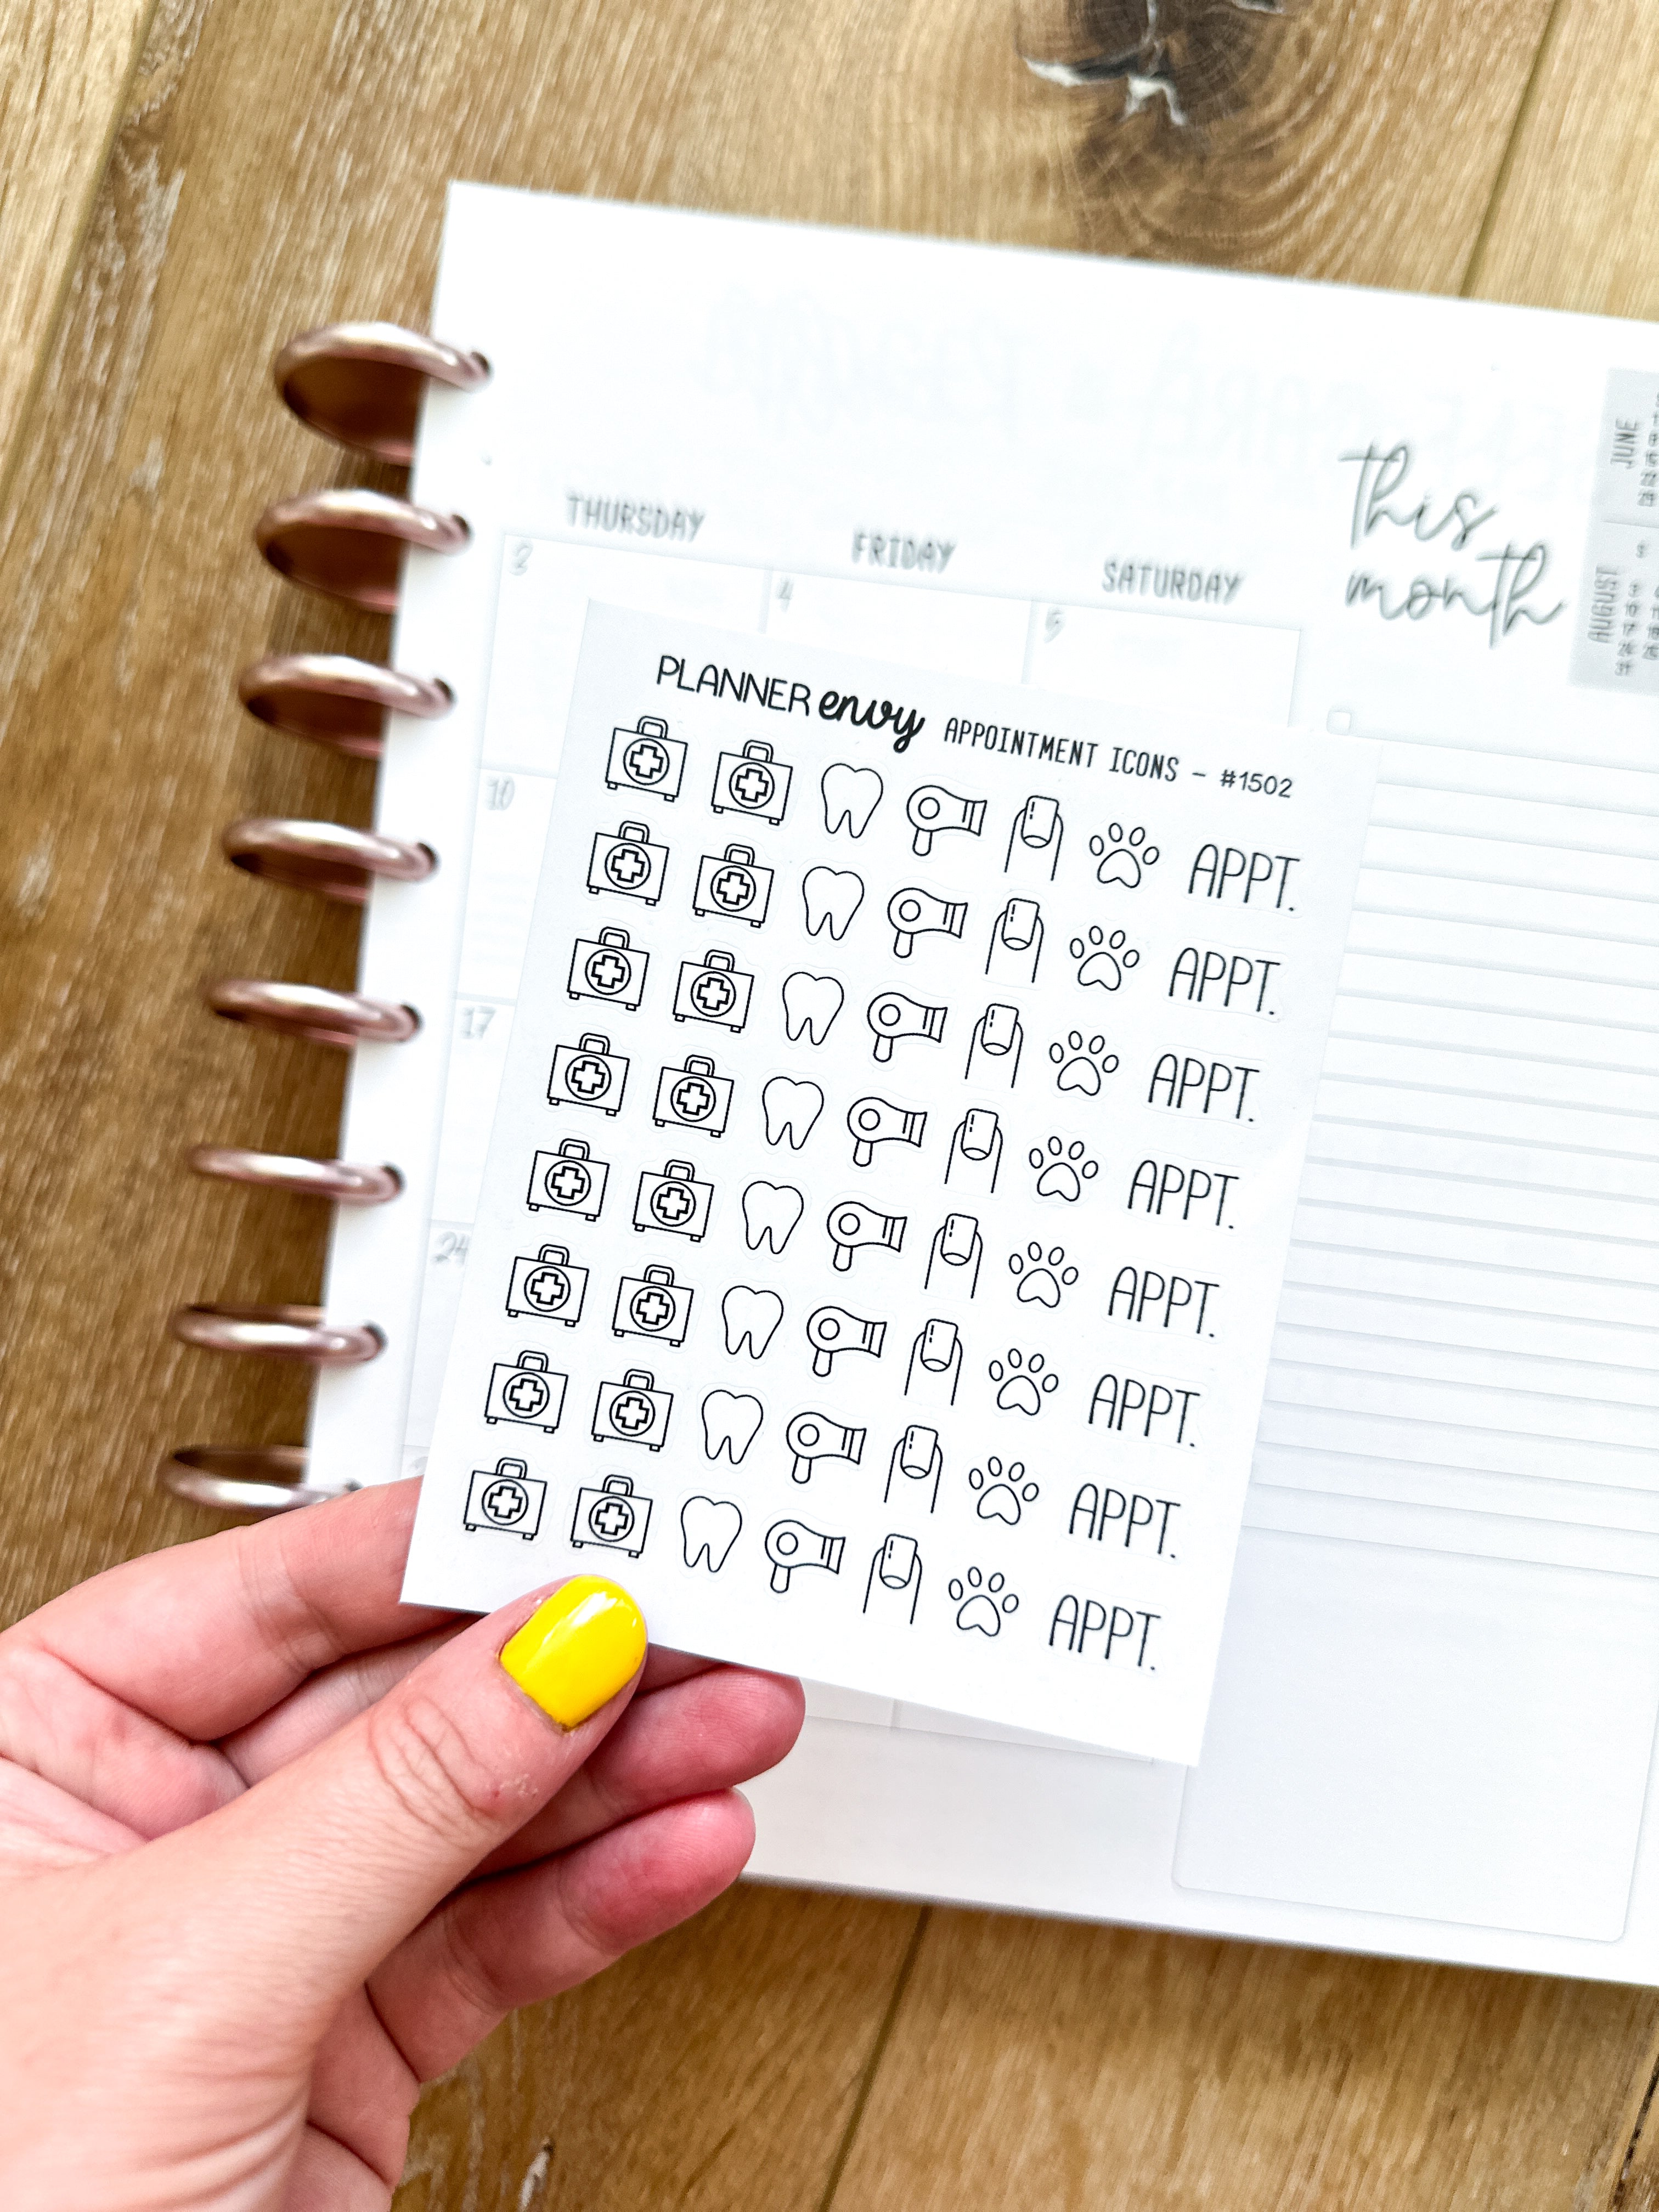 this
month
JUNE
AUGUST
THURSDAY
FRIDAY
SATURDAY
3
4
5
10
17
24
PLANNER envy APPOINTMENT ICONS - #1502
APPT.
APPT.
APPT.
APPT.
APPT.
APPT.
APPT.
APPT.